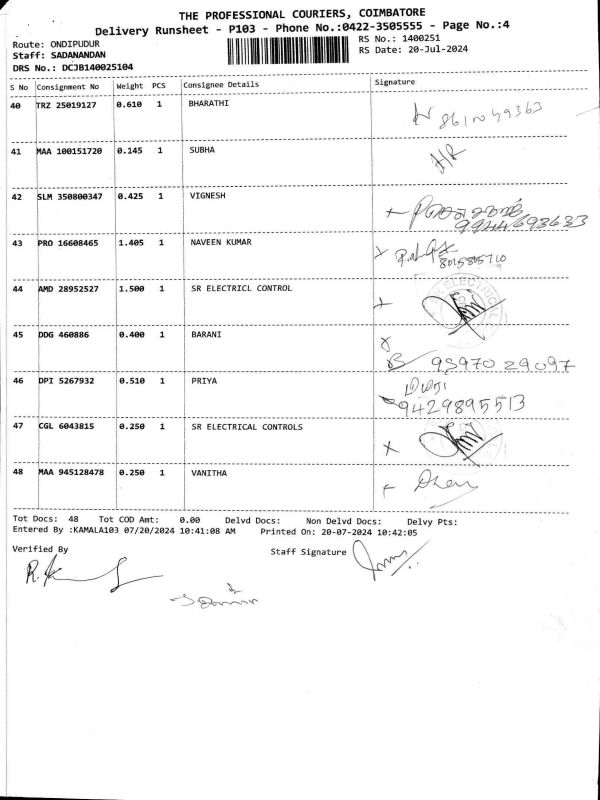 THE PROFESSIONAL COURIERS, COIMBATORE
Delivery Runsheet - P103 - Phone No.:0422-3505555 - Page No.:4
Route: ONDIPUDUR RS No.: 1400251
Staff: SADANANDAN RS Date: 20-Jul-2024
DRS No.: DCJB140025104
S No Consignment No Weight PCS Consignee Details Signature
40 TRZ 25019127 0.610 1 BHARATHI
41 MAA 100151720 0.145 1 SUBHA
42 SLM 350800347 0.425 1 VIGNESH
9944693633
43 PRO 16608465 1.405 1 NAVEEN KUMAR
44 AMD 28952527 1.500 1 SR ELECTRICL CONTROL
45 DDG 460886 0.400 1 BARANI
93970 29097
46 DPI 5267932 0.510 1 PRIYA
9429895513
47 CGL 6043815 0.250 1 SR ELECTRICAL CONTROLS
48 MAA 945128478 0.250 1 VANITHA
Tot Docs: 48 Tot COD Amt: 0.00 Delvd Docs: Non Delvd Docs: Delvy Pts:
Entered By :KAMALA103 07/20/2024 10:41:08 AM Printed On: 20-07-2024 10:42:05
Verified By Staff Signature